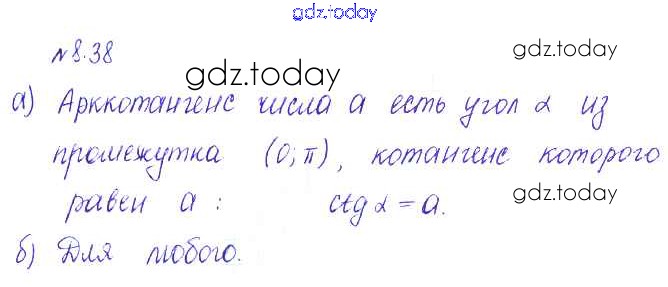 gdz.today
№8.38
gdz.today
gdz.today
а) Арккотангенс числа а есть угол α из
промежутка (0; π), котангенс которого
gdz.today
равен а : ctg α = a.
gdz.today
б) Для любого.